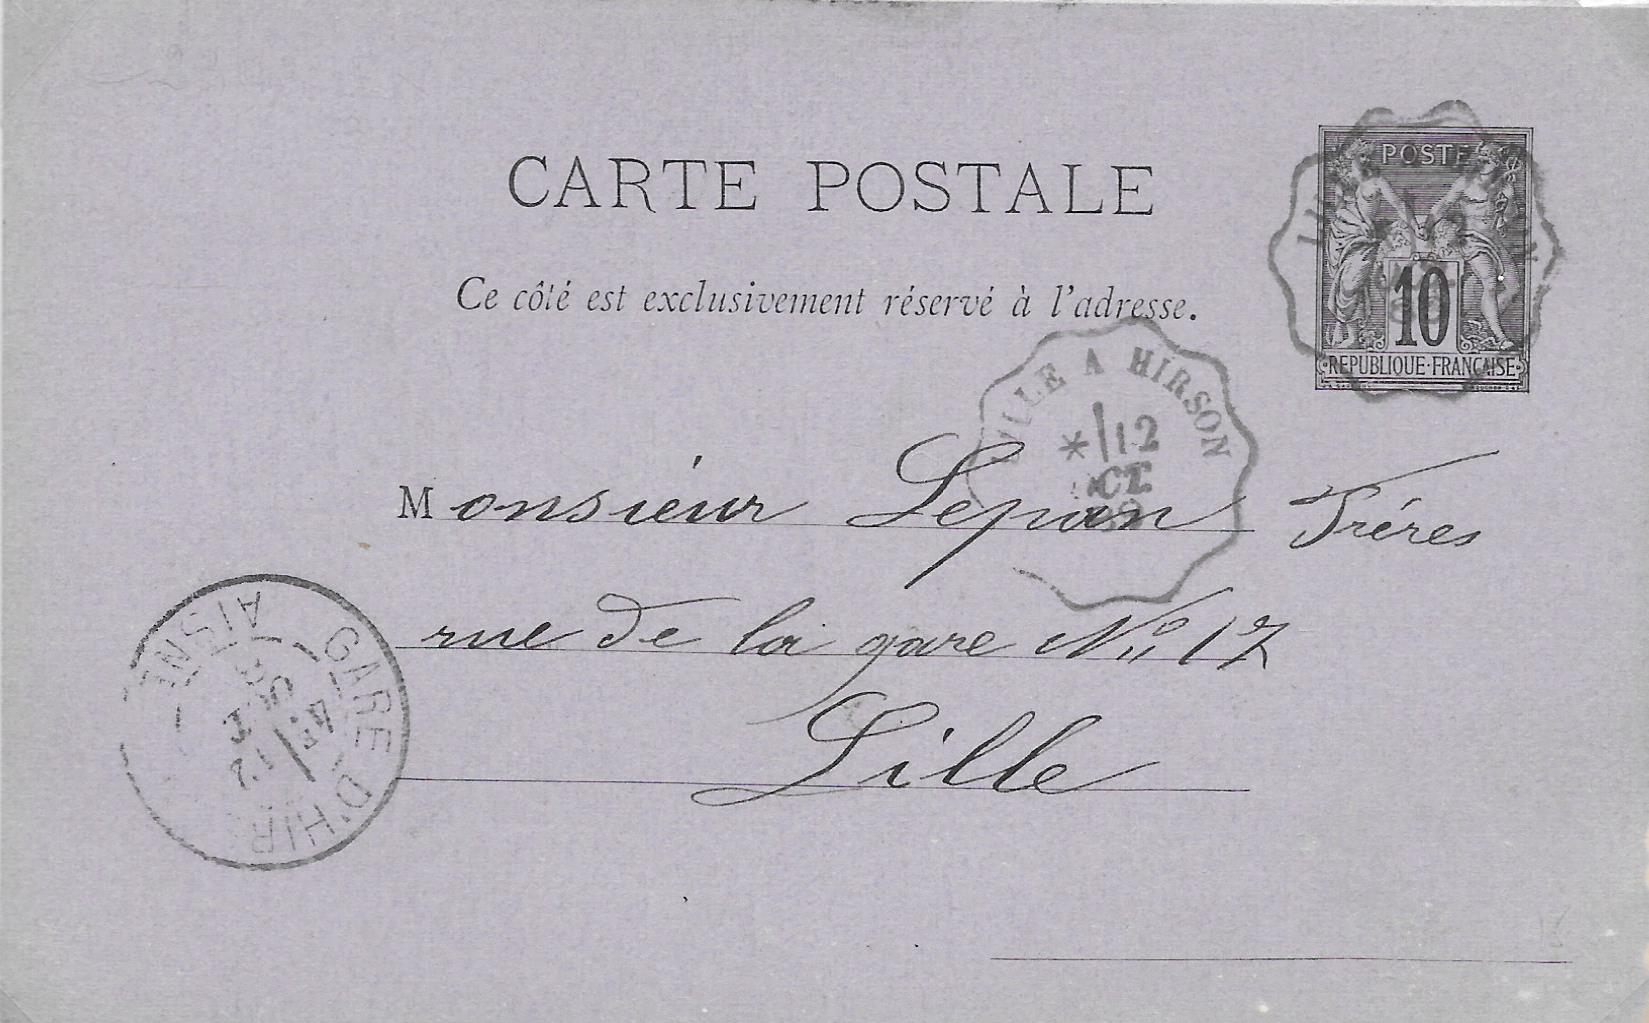 CARTE POSTALE
POSTE
Ce côté est exclusivement réservé à l'adresse.
10
REPUBLIQUE·FRANÇAISE
LILLE A HIRSON
12
OCT
Monsieur Lepan Fréres
rue de la gare No 17
Lille
GARE D'HIR
AISNE
4E
12
OCT